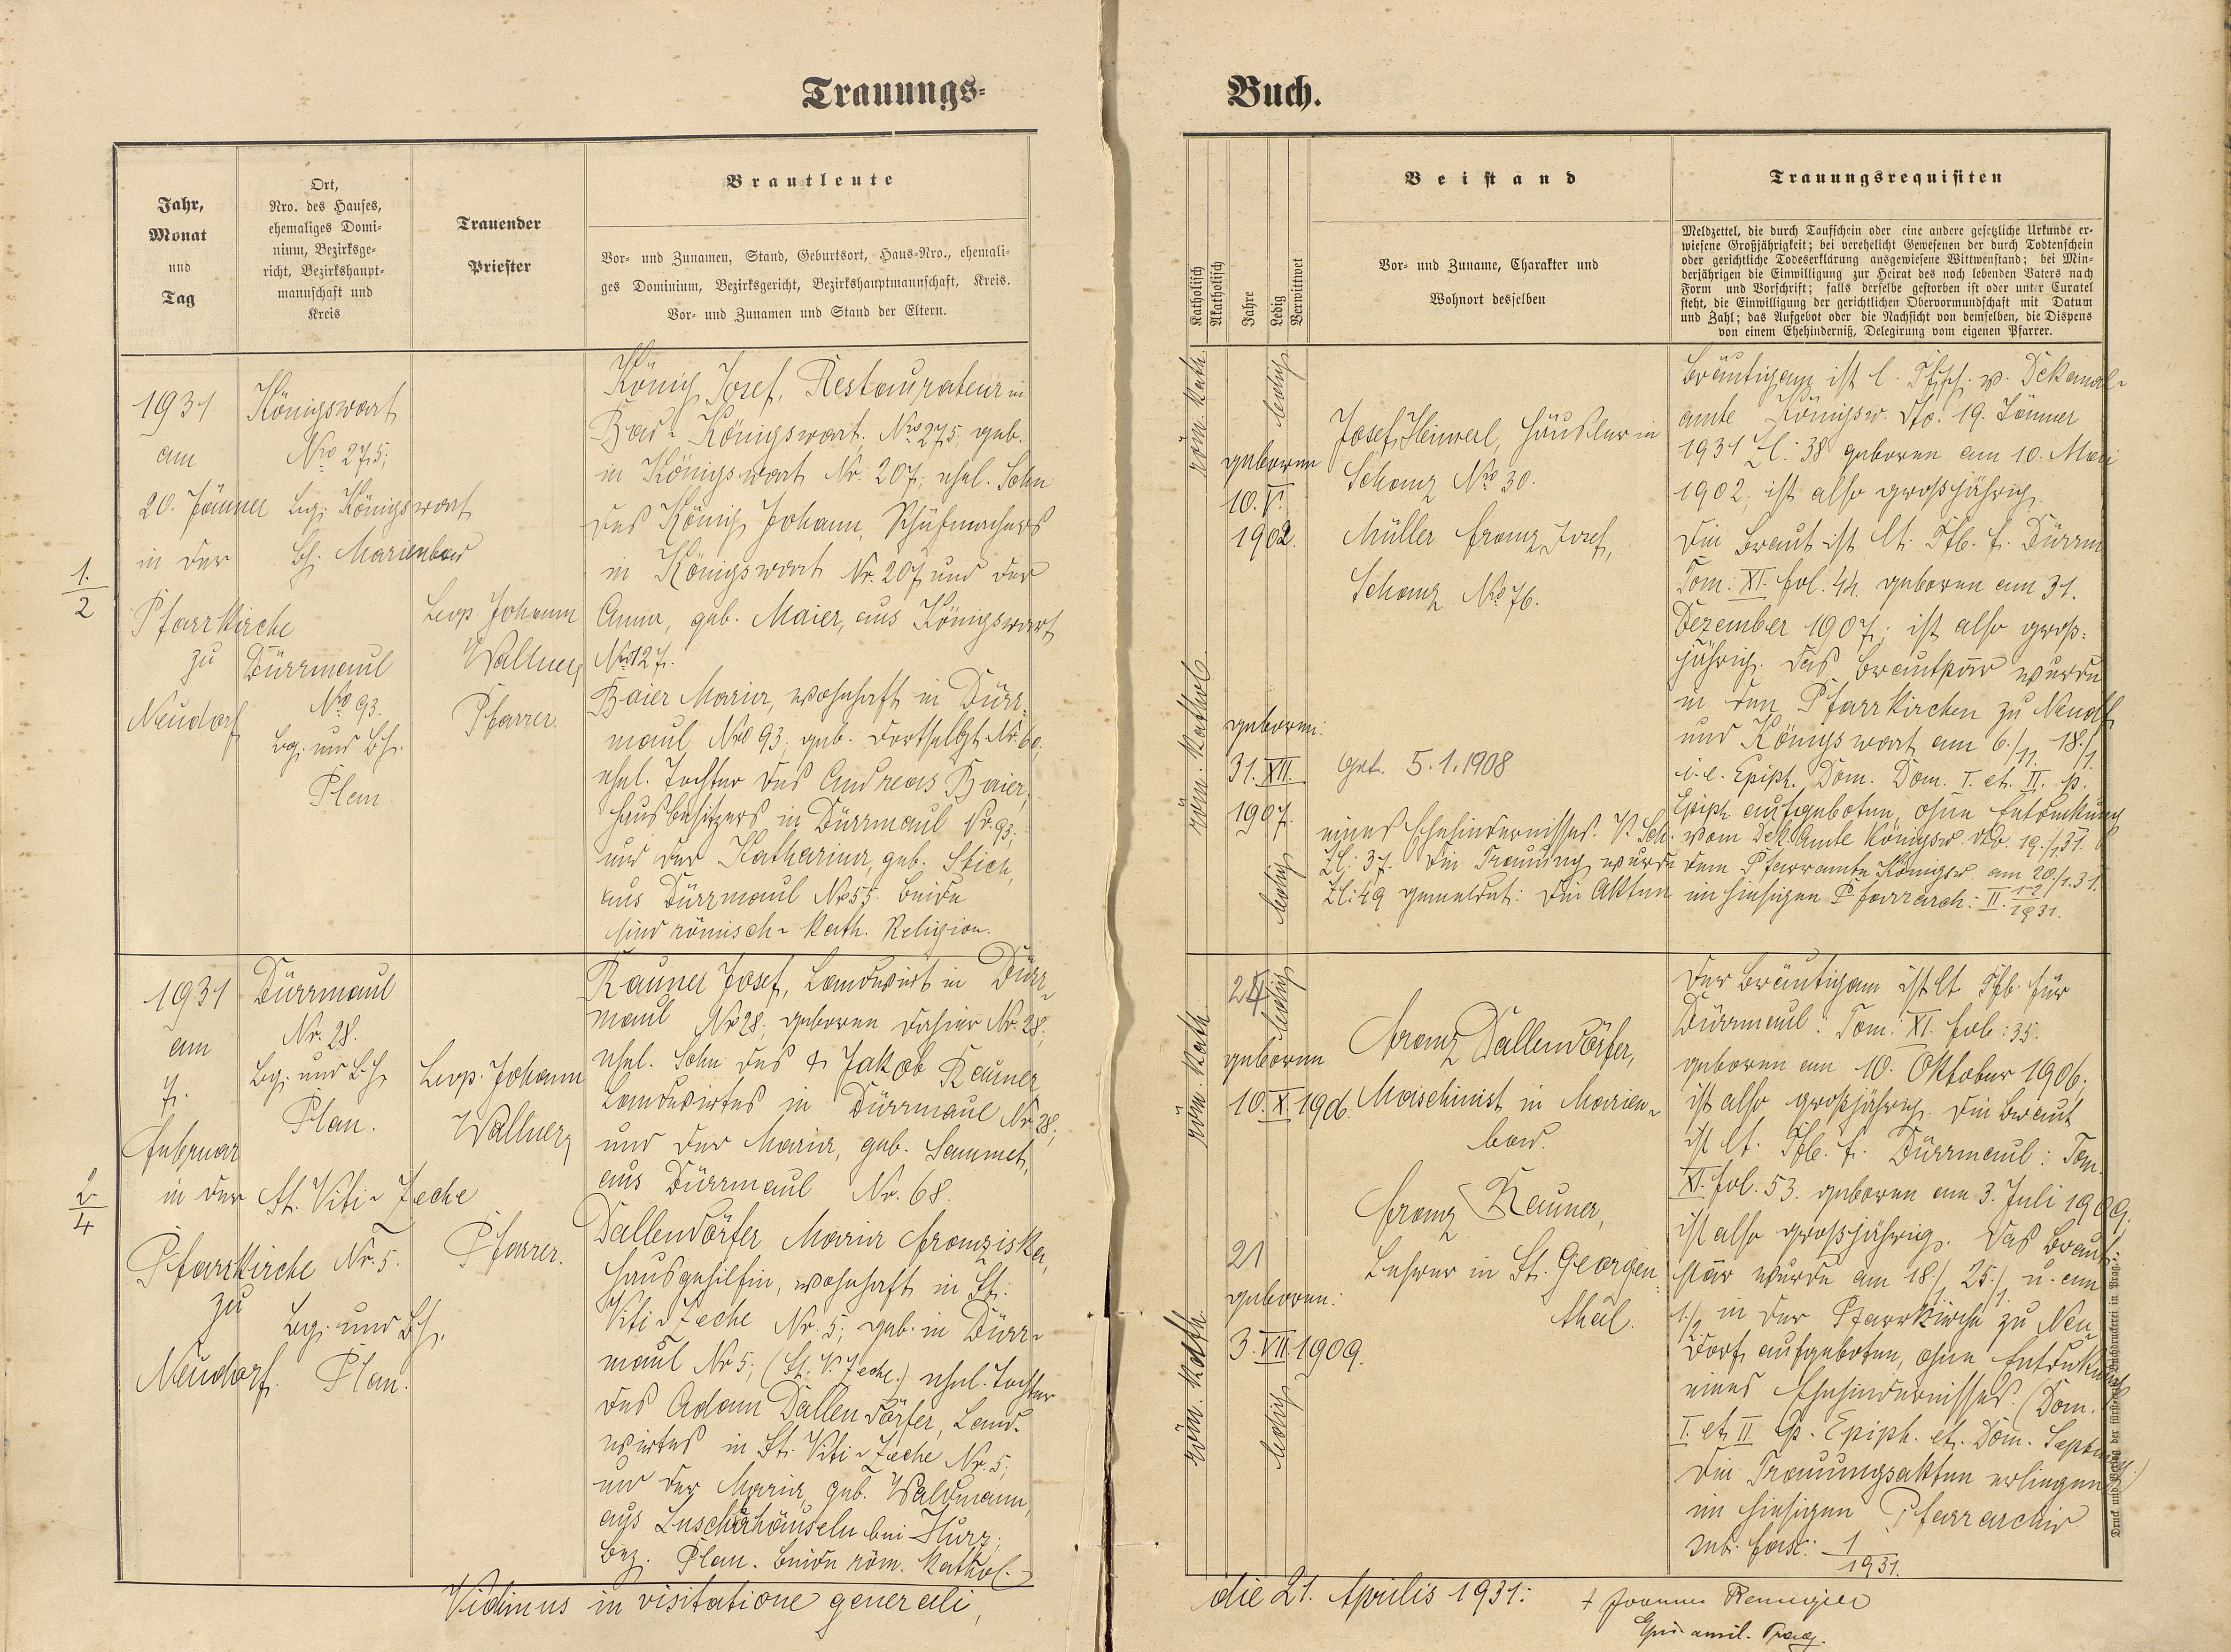 Trauungs-
Buch.
Jahr,
Monat
und
Tag
Ort,
Nro. des Hauses,
ehemaliges Domi-
nium, Bezirksge-
richt, Bezirkshaupt-
mannschaft und
Kreis
Trauender
Priester
Brautleute
Vor- und Zunamen, Stand, Geburtsort, Haus-Nro., ehemali-
ges Dominium, Bezirksgericht, Bezirkshauptmannschaft, Kreis.
Vor- und Zunamen und Stand der Eltern.
Katholisch
Akatholisch
Jahre
Ledig
Verwittwet
Beistand
Vor- und Zuname, Charakter und
Wohnort desselben
Trauungsrequisiten
Meldzettel, die durch Taufschein oder eine andere gesetzliche Urkunde er-
wiesene Großjährigkeit; bei verehelicht Gewesenen der durch Todtenschein
oder gerichtliche Todeserklärung ausgewiesene Wittwenstand; bei Min-
derjährigen die Einwilligung zur Heirat des noch lebenden Vaters nach
Form und Vorschrift; falls derselbe gestorben ist oder unter Curatel
steht, die Einwilligung der gerichtlichen Obervormundschaft mit Datum
und Zahl; das Aufgebot oder die Nachsicht von demselben, die Dispens
von einem Ehehinderniß, Delegirung vom eigenen Pfarrer.
1./2
1931
am
20. Jänner
in der
Pfarrkirche
zu
Neudorf
Königswart
Nro 275;
bg. Königswart
bh. Marienbad
Dürrmaul
Nro 93.
bg. und bh.
Plan
Leop. Johann
Wallner,
Pfarrer.
König Josef, Restaurateur in
Bad-Königswart. Nro 275; geb.
in Königswart Nr. 207; ehel. Sohn
des König Johann, Schuhmachers
in Königswart Nr. 207 und der
Anna, geb. Maier, aus Königswart
Nro 127.
Baier Maria, wohnhaft in Dürr-
maul Nro 93; geb. dortselbst Nr. 60;
ehel. Tochter des Andreas Baier,
Hausbesitzers in Dürrmaul Nr. 93;
und der Katharina, geb. Stich,
aus Dürrmaul Nro 55. Beide
sind römisch-kath. Religion.
röm. kath.
ledig
geboren
10. V.
1902.
röm. kathol.
geboren:
31. XII.
1907.
ledig
Josef Heimerl, Häusler in
Schanz Nro 30.
Müller Franz Josef,
Schanz Nro 76.
get. 5.1.1908
Bräutigam ist l. Tfsch. v. Dekanal-
amte Königsw. dto. 19. Jänner
1931 Zl: 38 geboren am 10. Mai
1902; ist also großjährig.
Die Braut ist lt. Tfb. f. Dürrm
Tom: XI. fol. 44. geboren am 31.
Dezember 1907; ist also groß-
jährig. Das Brautpaar wurde
in den Pfarrkirchen zu Neudf
und Königswart am 6./, 11., 18./1.
i. e. Epiph. Dom. Dom. I. et. II. p.
Epiph. aufgeboten, ohne Entdeckung
eines Ehehindernisses. V. Sch. vom Dek. Amte Königsw. dto. 19./1.31.
Zl: 37. Die Trauung wurde dem Pfarramte Königsw. am 20./1.31.
Zl: 49 gemeldet: Die Akten im hiesigen Pfarrarch: II. 1-2/1931.
2./4
1931
am
7.
Februar
in der
Pfarrkirche
zu
Neudorf.
Dürrmaul
Nr. 28.
bg. und bh.
Plan.
St. Viti-Zeche
Nr. 5.
bg. und bh.
Plan.
Leop. Johann
Wallner,
Pfarrer.
Rauner Josef, Landwirt in Dürr-
maul Nr 28; geboren dahier Nr. 28;
ehel. Sohn des † Jakob Rauner
Landwirtes in Dürrmaul Nr. 28;
und der Maria, geb. Sammet,
aus Dürrmaul Nr. 68.
Dallendörfer Maria Franziska,
Hausgehilfin, wohnhaft in St.
Viti-Zeche Nr. 5; geb. in Dürr-
maul Nr 5; (St. V. Zeche.) ehel. Tochter
des Adam Dallendörfer, Land-
wirtes in St. Viti-Zeche Nr. 5;
und der Maria, geb. Waldmann,
aus Zuschahäuseln bei Hurz;
Bez. Plan. Beide röm. kathol.
röm. kath.
24
ledig
geboren
10. X. 1906.
röm. kath.
21
geboren:
3. VII. 1909.
ledig
Franz Dallendörfer,
Maschinist in Marien-
bad.
Franz Rauner,
Lehrer in St. Georgen-
thal.
Der Bräutigam ist lt Tfb. für
Dürrmaul: Tom: XI. fol: 35.
geboren am 10. Oktober 1906;
ist also großjährig. Die Braut
ist lt. Tfb. f. Dürrmaul: Tom.
XI. fol. 53. geboren am 3. Juli 1909;
ist also großjährig. Das Braut-
paar wurde am 18./1, 25./1. u. am
1./2. in der Pfarrkirche zu Neu
dorf aufgeboten, ohne Entdeckung
eines Ehehindernisses. (Dom.
I. et. II p. Epiph. et. Dom. Septuag.)
Die Trauungsakten erliegen
im hiesigen Pfarrarchiv
sub. fasc: 1/1931.
Druck und Verlag der fürsterzb. Buchdruckerei in Prag.
Vidimus in visitatione generali,
die 21. Aprilis 1931:
† Joannes Remiger
Eppus auxil. Prag.